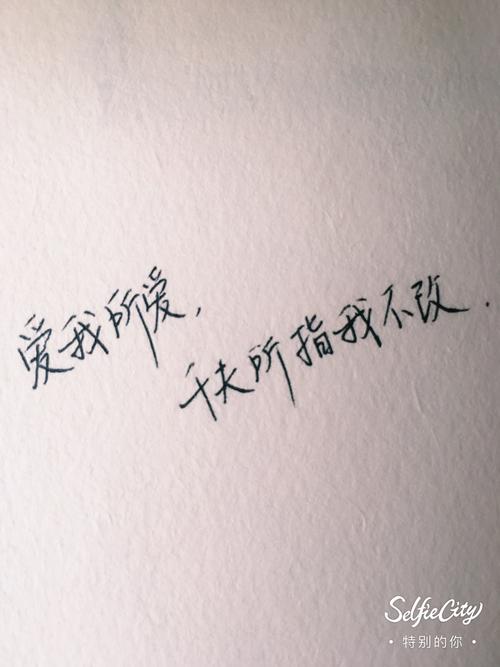 爱我所爱,
千夫所指我不改.
SelfieCity
• 特别的你 •